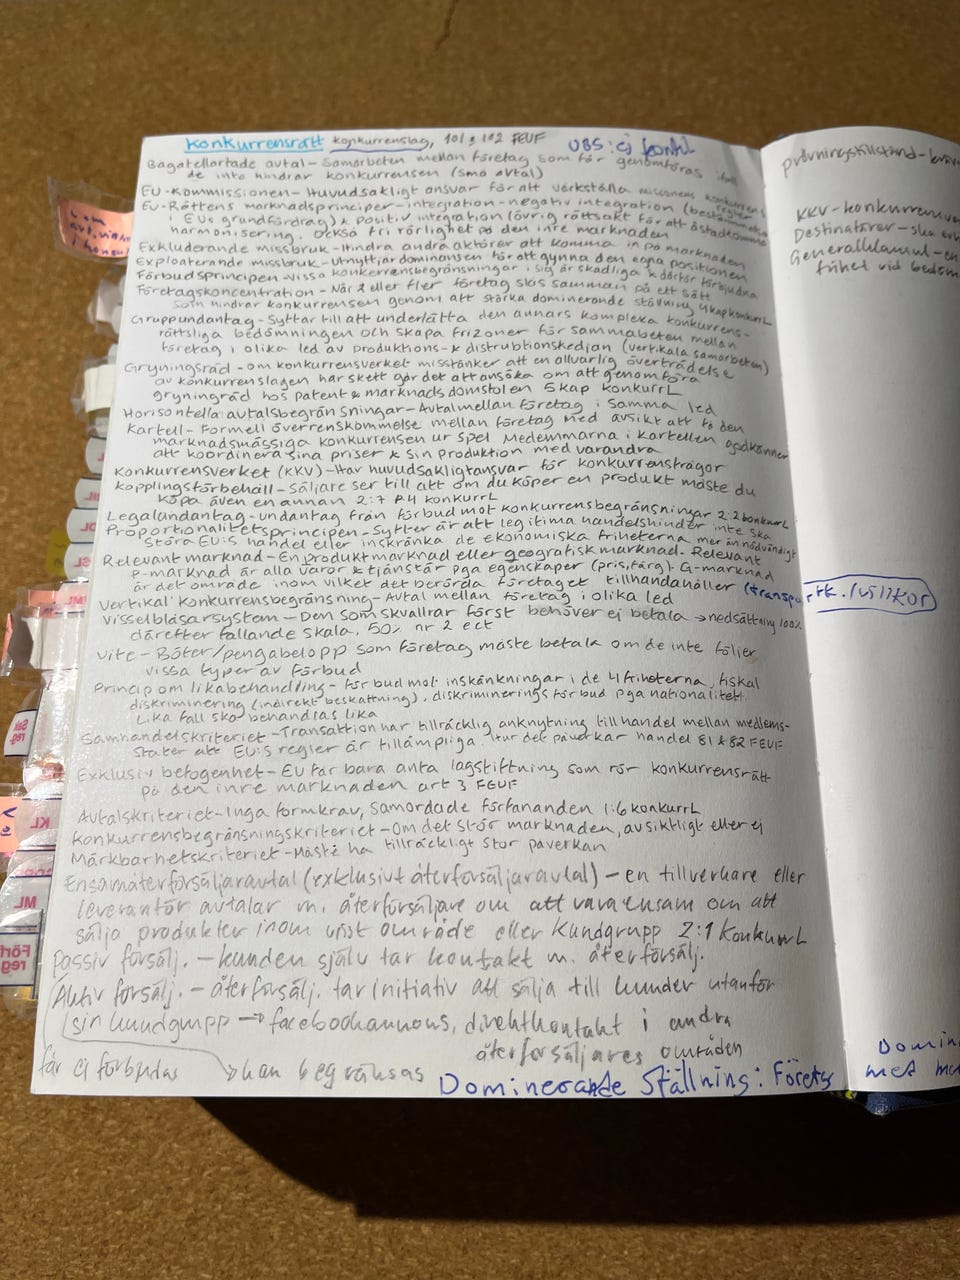 Konkurrensrätt konkurrenslag, 101 & 102 FEUF OBS: ej
Bagatellartade avtal - Samarbeten mellan företag som får genomföras då
de inte hindrar konkurrensen (små avtal)
EU-Kommissionen - Huvudsakligt ansvar för att verkställa unionens konkurrens
regler
EU-Rättens marknadsprinciper - integration - negativ integration (bestämmelse
i EUs grundfördrag) & positiv integration (övrig rättsakt för att åstadkomma
harmonisering, också fri rörlighet på den inre marknaden
Exkluderande missbruk - Hindra andra aktörer att komma in på marknaden
Exploaterande missbruk - Utnyttjar dominansen för att gynna den egna positionen
Förbudsprincipen - vissa konkerrensbegränsningar i sig är skadliga & därför förbjudna
Företagskoncentration - När 2 eller fler företag slås samman på ett sätt
som hindrar konkurrensen genom att stärka dominerande ställning 4kap konkurrL
Gruppundantag - Syftar till att underlätta den annars komplexa konkurrens-
rättsliga bedömningen och skapa frizoner för sammabeten mellan
företag i olika led av produktions- & distrubtionskedjan (vertikala samarbeten)
Gryningsräd - om konkurensverket misstänker att en allvarlig överträdelse
av konkurrenslagen har skett går det att ansöka om att genomföra
gryningräd hos patent & marknadsdomstolen 5kap konkurrL
Horisontella avtalsbegränsningar - Avtal mellan företag i samma led
Kartell - Formell överrenskommelse mellan företag med avsikt att få den
marknadsmässiga konkurrensen ur spel Medlemmarna i kartellen godkänner
att koordinera sina priser & sin produktion med varandra
Konkurrensverket (KKV) - Har huvudsakligt ansvar för konkurrensfrågor
Kopplingsförbehåll - Säljare ser till att om du köper en produkt måste du
köpa även en annan 2:7 p4 konkurrL
Legalundantag - undantag från förbud mot konkurrensbegränsningar 2:2 konkurrL
Proportionalitetsprincipen - Syfter är att legitima handelshinder inte ska
störa EU:s handel eller inskränka de ekonomiska friheterna mer än nödvändigt
Relevant marknad - En produktmarknad eller geografisk marknad. Relevant
p-marknad är alla varor & tjänstär pga egenskaper (pris, färg) G-marknad
är det område inom vilket det berörda företaget tillhandahåller (transpo
rtk. / villkor)
Vertikal konkurrensbegränsning - Avtal mellan företag i olika led
Visselblåsarsystem - Den som skvallrar först behöver ej betala → nedsättning 100%
därefter fallande skala, 50% nr 2 ect
Vite - Böter/pengabelopp som företag måste betala om de inte följer
vissa typer av förbud
Princip om likabehandling - förbud mot inskänkningar i de 4 friheterna, fiskal
diskriminering (indirekt beskattning), diskriminerings förbud pga nationalitet
Lika fall ska behandlas lika
Samhandelskriteriet - Transaktion har tillräcklig anknytning till handel mellan medlems-
stater att EU:s regler är tillämpliga. Hur det påverkar handel 81 & 82 FEUF
Exklusiv befogenhet - EU får bara anta lagstiftning som rör konkurrensrätt
på den inre marknaden art 3 FEUF
Avtalskriteriet - Inga formkrav, samordade förfananden 1:6 konkurrL
Konkurrensbegränsningskriteriet - Om det stör marknaden, avsiktligt eller ej
Märkbarhetskriteriet - Måste ha tillräckligt stor påverkan
Ensamåterförsäljaravtal (exklusivt återförsäljaravtal) - en tillverkare eller
leverantör avtalar m. återförsäljare om att vara ensam om att
sälja produkter inom visst område eller kundgrupp 2:1 konkurrL
Passiv försälj. - kunden själv tar kontakt m. återförsälj.
Aktiv försälj. - återförsälj. tar initiativ att sälja till kunder utanför
sin kundgrupp → facebookannons, direktkontakt i andra
återförsäljares områden
får ej förbjudas → kan begränsas
Dominerande Ställning: Företag
prövningstillstånd -
KKV - konkurrensve
Destinatörer - ska
Generalklausul - en
frihet vid bedöm
Domin
med
KL
ML